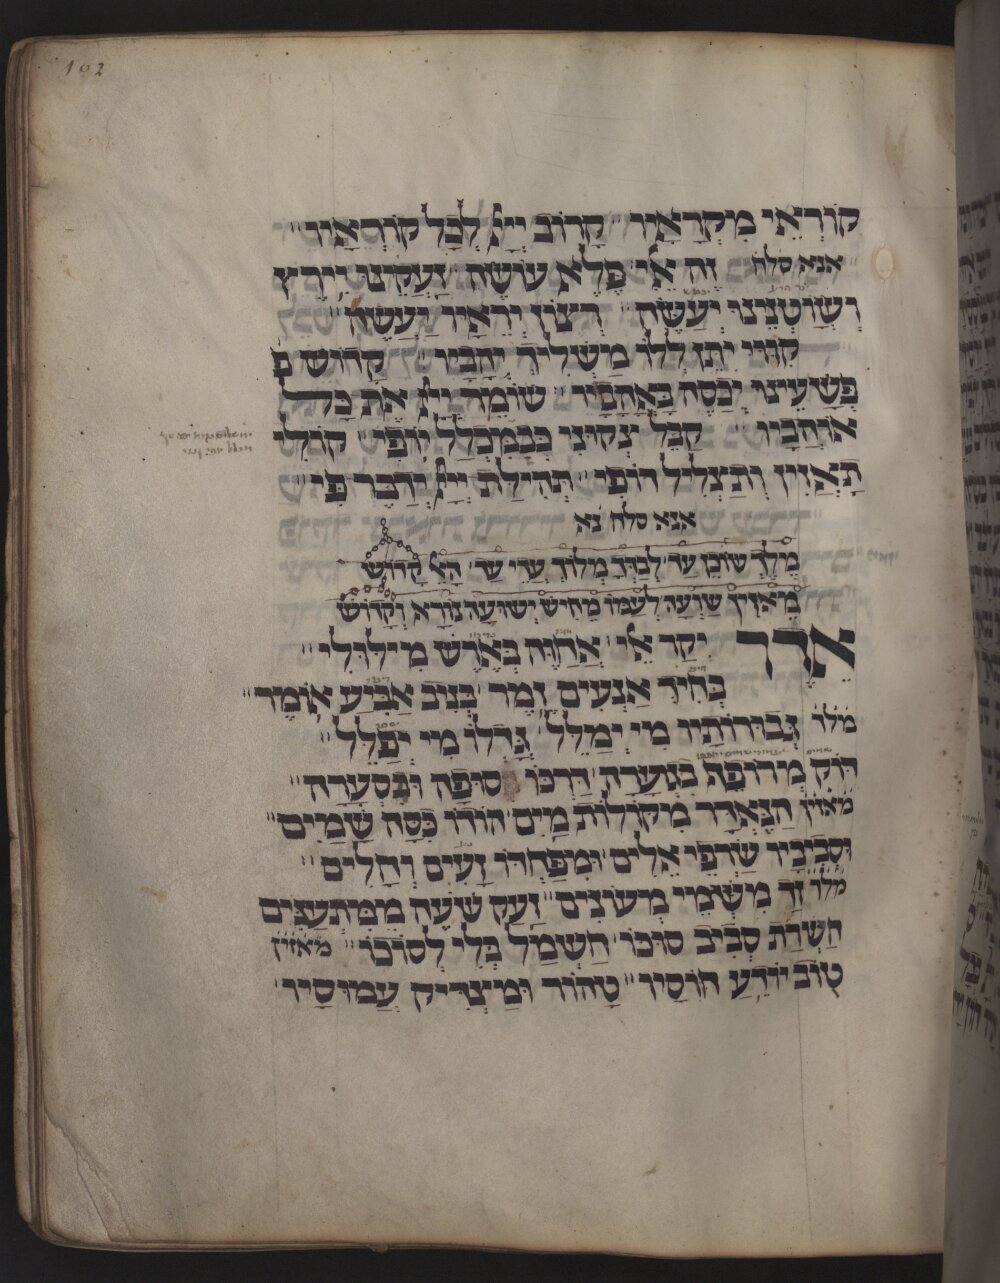 102
קוֹרְאֵי מִקְרָאָיו קָרוֹב יְיָ לְכָל קוֹרְאָיו
אנא סלח זֶה אֵלִי פֶּלֶא עוֹשֶׂה זַעֲקֵנוּ יְרַץ
וְשַׁוְּעֵינוּ יַעֲשֶׂה רְצוֹן יְרֵאָיו יַעֲשֶׂה
יִתְגַּלְּלוּ מַשְׁלִיךְ יְהָבָיו קָדוֹשׁ
פְּשָׁעֵינוּ יְכַסֶּה בְּאַהֲבָיו שׁוֹמֵר יְיָ אֶת כָּל
אוֹהֲבָיו קַבֵּל בְּמִכְלַל יוֹפִי קוֹלִי
תַאֲזִין וְתִצְלִיל דּוֹפִי תְּהִלַּת יְיָ יְדַבֶּר פִּי
אנא סלח נא
מֶלֶךְ שׁוֹכֵן עַד לְבַדְּךָ מְלוֹךְ עֲדֵי עַד הָאֵל קָדוֹשׁ
מַאֲזִין שַׁוְעָה לְעַמּוֹ מֵחִישׁ יְשׁוּעָה נוֹרָא וְקָדוֹשׁ
אֶדֶר יְקַר אֵלִי אֲחַוֶּה בְּאֶרֶשׁ מִילּוּלִי
בְּחִיר אַנְעִים זֶמֶר בְּנִיב אַבִּיעַ אוֹמֶר
מלוֹ גְּבוּרוֹתָיו מִי יְמַלֵּל גָּדְלוֹ מִי יְפַלֵּל
דּוֹק מְרוֹפֵף בִּגְעָרָה דַּרְכּוֹ סוּפָה וּבִסְעָרָה
מאזין הַנֶּאְדָּר מִקּוֹלוֹת מַיִם הוֹדוֹ כִּסָּה שָׁמַיִם
וּסְבִיבָיו שַׂרְפֵי אֵלִים וּמִפַּחְדּוֹ זָעִים וְחָלִים
מלוֹ זַךְ מִשְּׁמֵי מְעוֹנִים זַעַק שָׁעָה מִמִּתְעַנִּים
חַשְׁרַת סָבִיב סוּכּוֹ חַשְׁמַל בְּלִי לְסוֹכוֹ מאזין
טוֹב יוֹדֵעַ חוֹסָיו טָהוֹר וּמַצְדִּיק עֲמוּסָיו